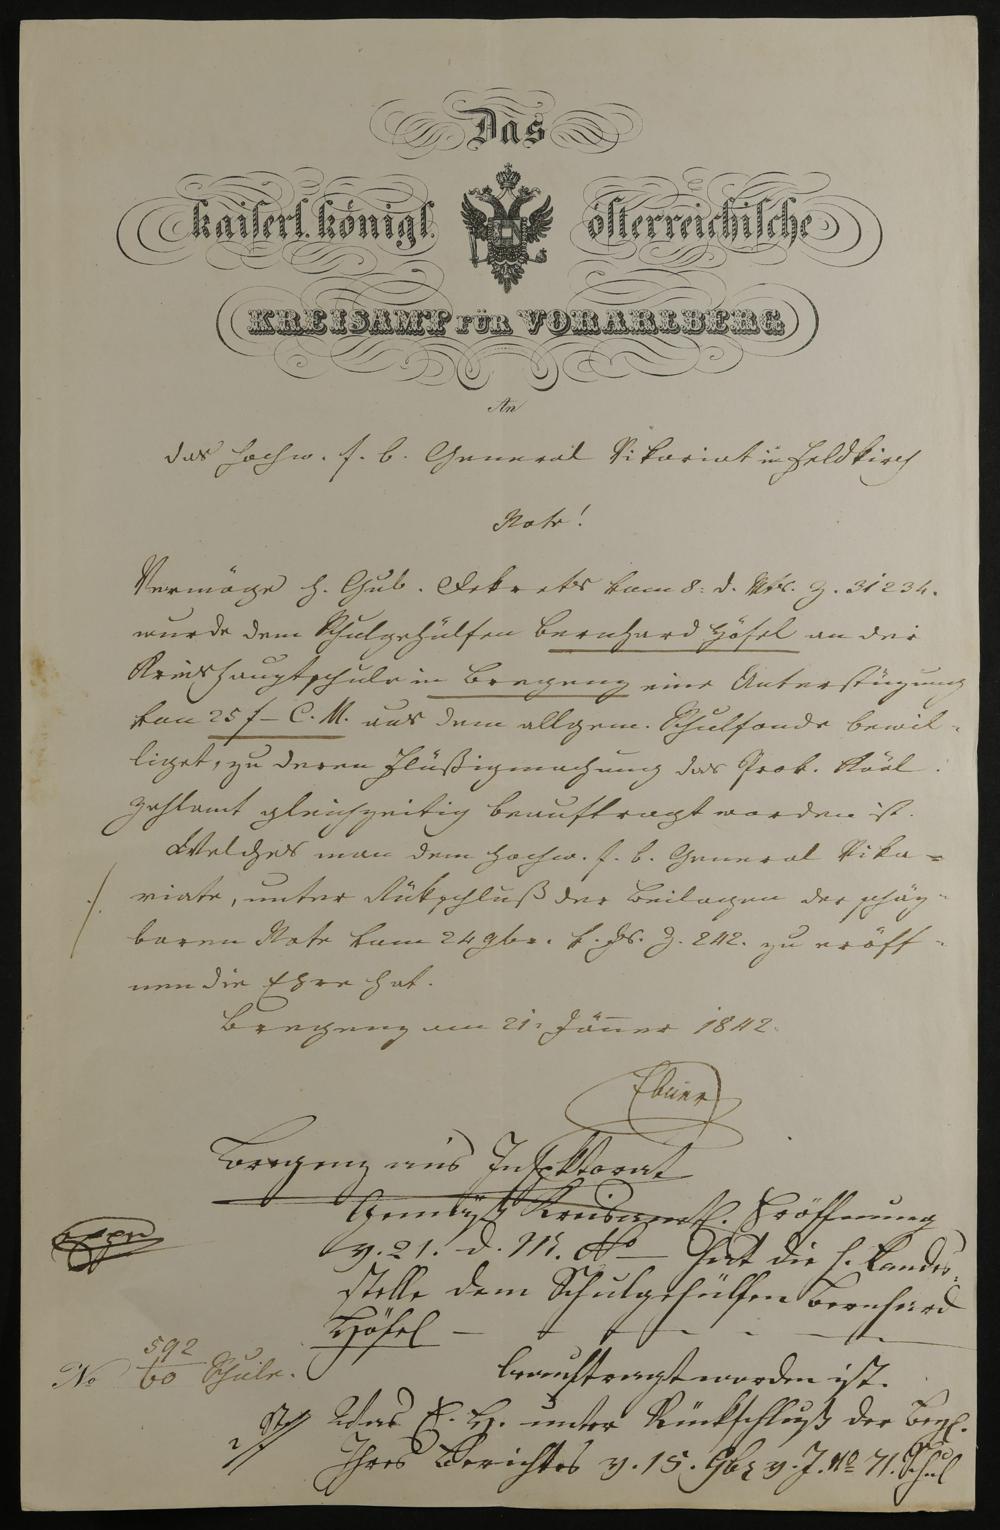 Das
kaiserl. königl. österreichische
KREISAMT FÜR VORARLBERG
An
das hochw. f. b. General Vikariat in Feldkirch
Note!
Vermöge h. Gub. Dekrets vom 8. d. Mts. Z. 31234.
wurde dem Schulgehülfen Bernhard Hösel an der
Kreishauptschule in Bregenz eine Unterstüzung
von 25 f – C. M. aus dem allgem. Schulfonde bewil-
liget, zu deren Flüßigmachung das Prov.
Zahlamt gleichzeitig beauftragt worden ist.
Welches man dem hochw. f. b. General Vika-
riate, unter Rükschluß der Beilagen der schäz-
baren Note vom 24 9ber. v. Js. Z. 242. zu eröff-
nen die Ehre hat.
Bregenz am 21. Jänner 1842.
Ebner
Bregenz ans Inspektorat
Gemäß Kreisamtl. Eröffnung
v. 21. d. M. No – hat die h. Landes-
stelle dem Schulgehülfen Bernhard
Hösel – – – – – –
beauftragt worden ist.
No 592/60 Schule.
Was E. H. unter Rückschluß der Beyl.
Ihres Berichtes v. 15. 9br v. J. No 71. Schul